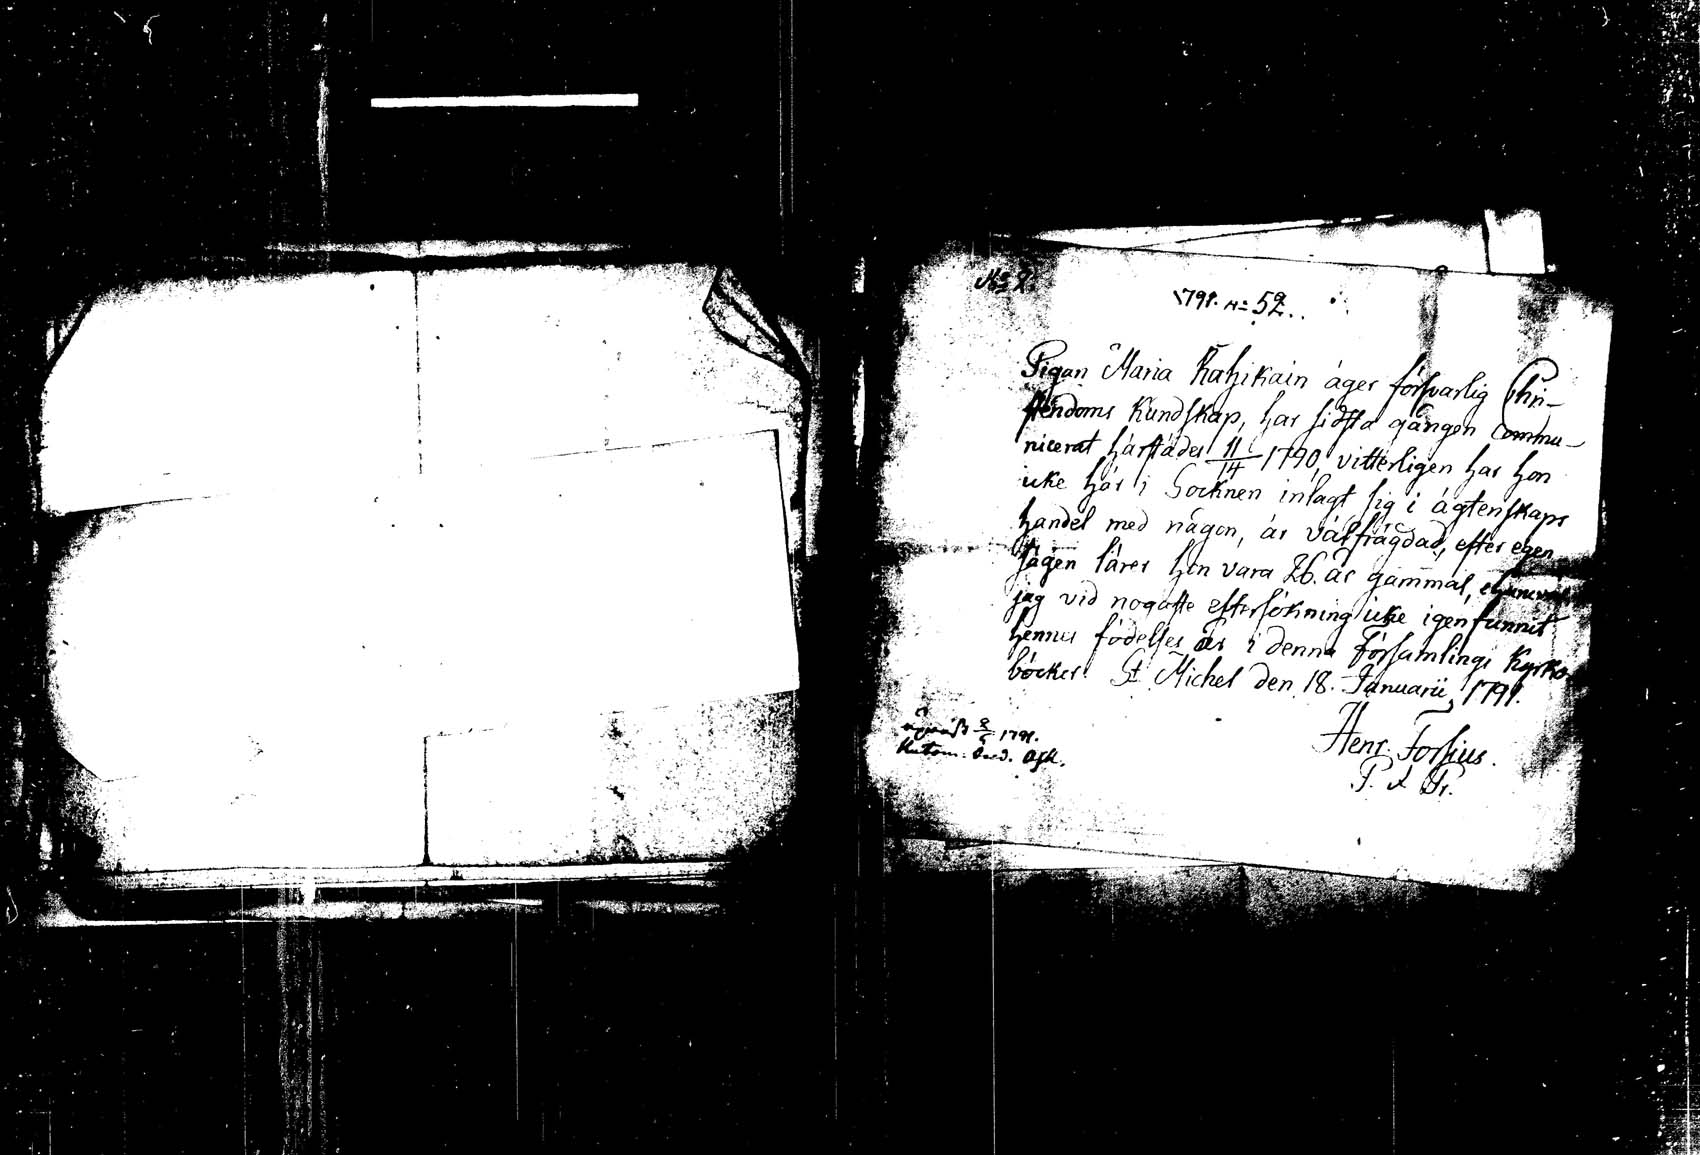 No 2.
1791. No 52.
Pigan Maria Kahikain äger försvarlig Chri-
stendoms Kundskap, har sidsta gången commu-
nicerat härstädes 11/14 1790, vitterligen har hon
icke här i Socknen inlagt sig i ägtenskaps
handel med någon, är välfrägdad, efter egen
sägen lärer hon vara 26. år gammal,
jag vid nogaste eftersökning icke igenfunnit
hennes födelses år i denna Församlings Kyrko
böcker. St Michel den 18. Januarii 1791.
Henr. Forsius.
P. &
1791.